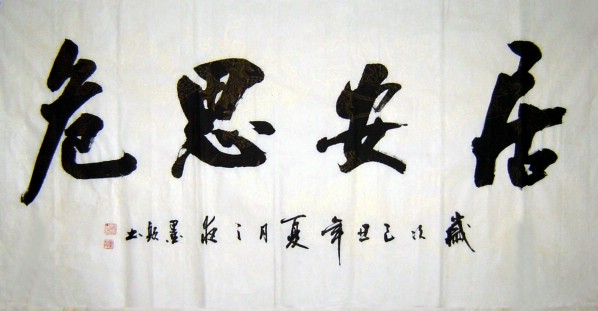 居安思危
歲次己丑年夏月之夜墨歌书